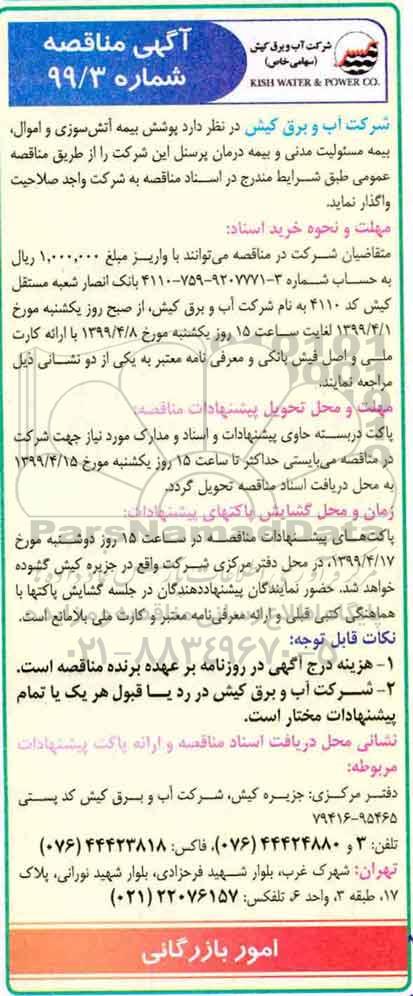 آگهی مناقصه
شماره ۹۹/۳
شرکت آب و برق کیش
(سهامی خاص)
KISH WATER & POWER CO.
شرکت آب و برق کیش در نظر دارد پوشش بیمه آتش‌سوزی و اموال،
بیمه مسئولیت مدنی و بیمه درمان پرسنل این شرکت را از طریق مناقصه
عمومی طبق شرایط مندرج در اسناد مناقصه به شرکت واجد صلاحیت
واگذار نماید.
مهلت و نحوه خرید اسناد:
متقاضیان شرکت در مناقصه می‌توانند با واریز مبلغ ۱,۰۰۰,۰۰۰ ریال
به حساب شماره ۳-۹۲۰۷۷۷۱-۷۵۹-۴۱۱۰ بانک انصار شعبه مستقل
کیش کد ۴۱۱۰ به نام شرکت آب و برق کیش، از صبح روز یکشنبه مورخ
۱۳۹۹/۴/۱ لغایت ساعت ۱۵ روز یکشنبه مورخ ۱۳۹۹/۴/۸ با ارائه کارت
ملی و اصل فیش بانکی و معرفی نامه معتبر به یکی از دو نشانی ذیل
مراجعه نمایند.
مهلت و محل تحویل پیشنهادات مناقصه:
پاکت دربسته حاوی پیشنهادات و اسناد و مدارک مورد نیاز جهت شرکت
در مناقصه می‌بایستی حداکثر تا ساعت ۱۵ روز یکشنبه مورخ ۱۳۹۹/۴/۱۵
به محل دریافت اسناد مناقصه تحویل گردد.
زمان و محل گشایش پاکتهای پیشنهادات:
پاکت‌های پیشنهادات مناقصه در ساعت ۱۵ روز دوشنبه مورخ
۱۳۹۹/۴/۱۷، در محل دفتر مرکزی شرکت واقع در جزیره کیش گشوده
خواهد شد. حضور نمایندگان پیشنهاددهندگان در جلسه گشایش پاکتها با
هماهنگی کتبی قبلی و ارائه معرفی‌نامه معتبر و کارت ملی بلامانع است.
نکات قابل توجه:
۱- هزینه درج آگهی در روزنامه بر عهده برنده مناقصه است.
۲- شرکت آب و برق کیش در رد یا قبول هر یک یا تمام
پیشنهادات مختار است.
نشانی محل دریافت اسناد مناقصه و ارائه پاکت پیشنهادات
مربوطه:
دفتر مرکزی: جزیره کیش، شرکت آب و برق کیش کد پستی
۷۹۴۱۶-۹۵۴۶۵
تلفن: ۳ و ۴۴۴۲۴۸۸۰ (۰۷۶)، فاکس: ۴۴۴۲۳۸۱۸ (۰۷۶)
تهران: شهرک غرب، بلوار شهید فرحزادی، بلوار شهید نورانی، پلاک
۱۷، طبقه ۳، واحد ۶، تلفکس: ۲۲۰۷۶۱۵۷ (۰۲۱)
امور بازرگانی
ParsNamadData
۰۲۱-۸۸۳۴۹۶۷۰-۵